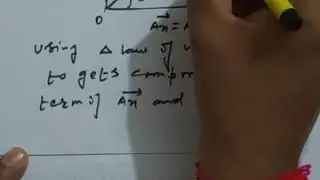 O
Ax = A
using Δ law of v
to gets compo
term of Ax and